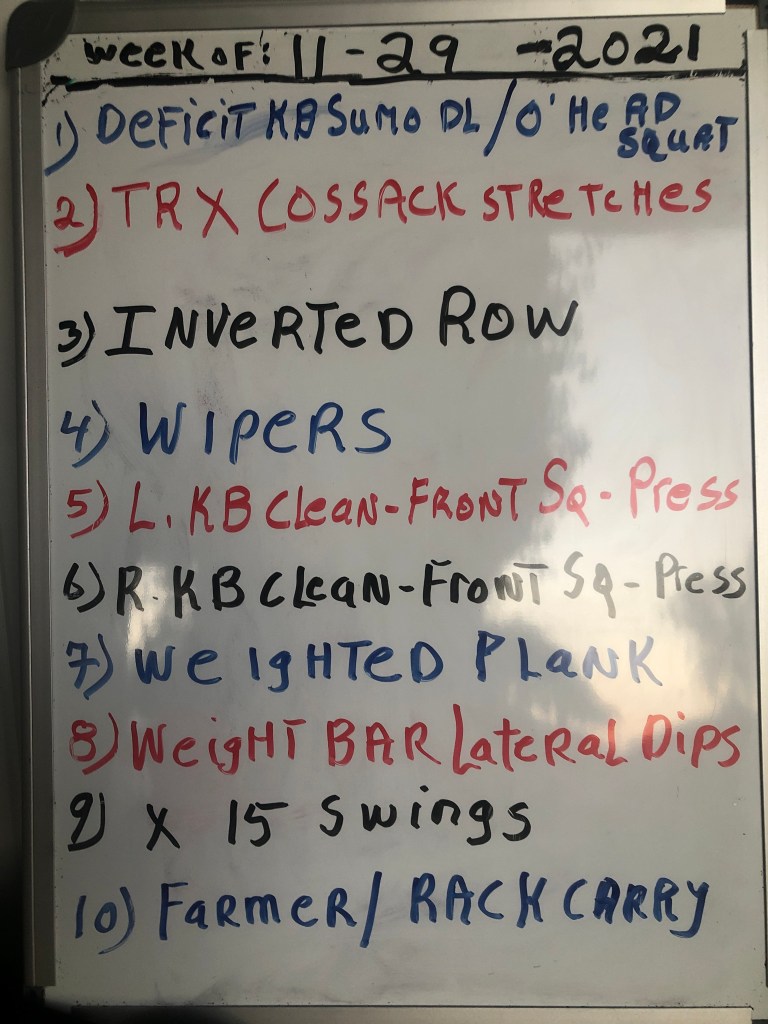 Week of: 11-29 -2021
1) Deficit KB Sumo DL/O'Head Squat
2) TRX Cossack Stretches
3) Inverted Row
4) Wipers
5) L. KB Clean-Front Sq-Press
6) R. KB Clean-Front Sq-Press
7) Weighted Plank
8) Weight Bar Lateral Dips
9) x 15 Swings
10) Farmer/ Rack Carry